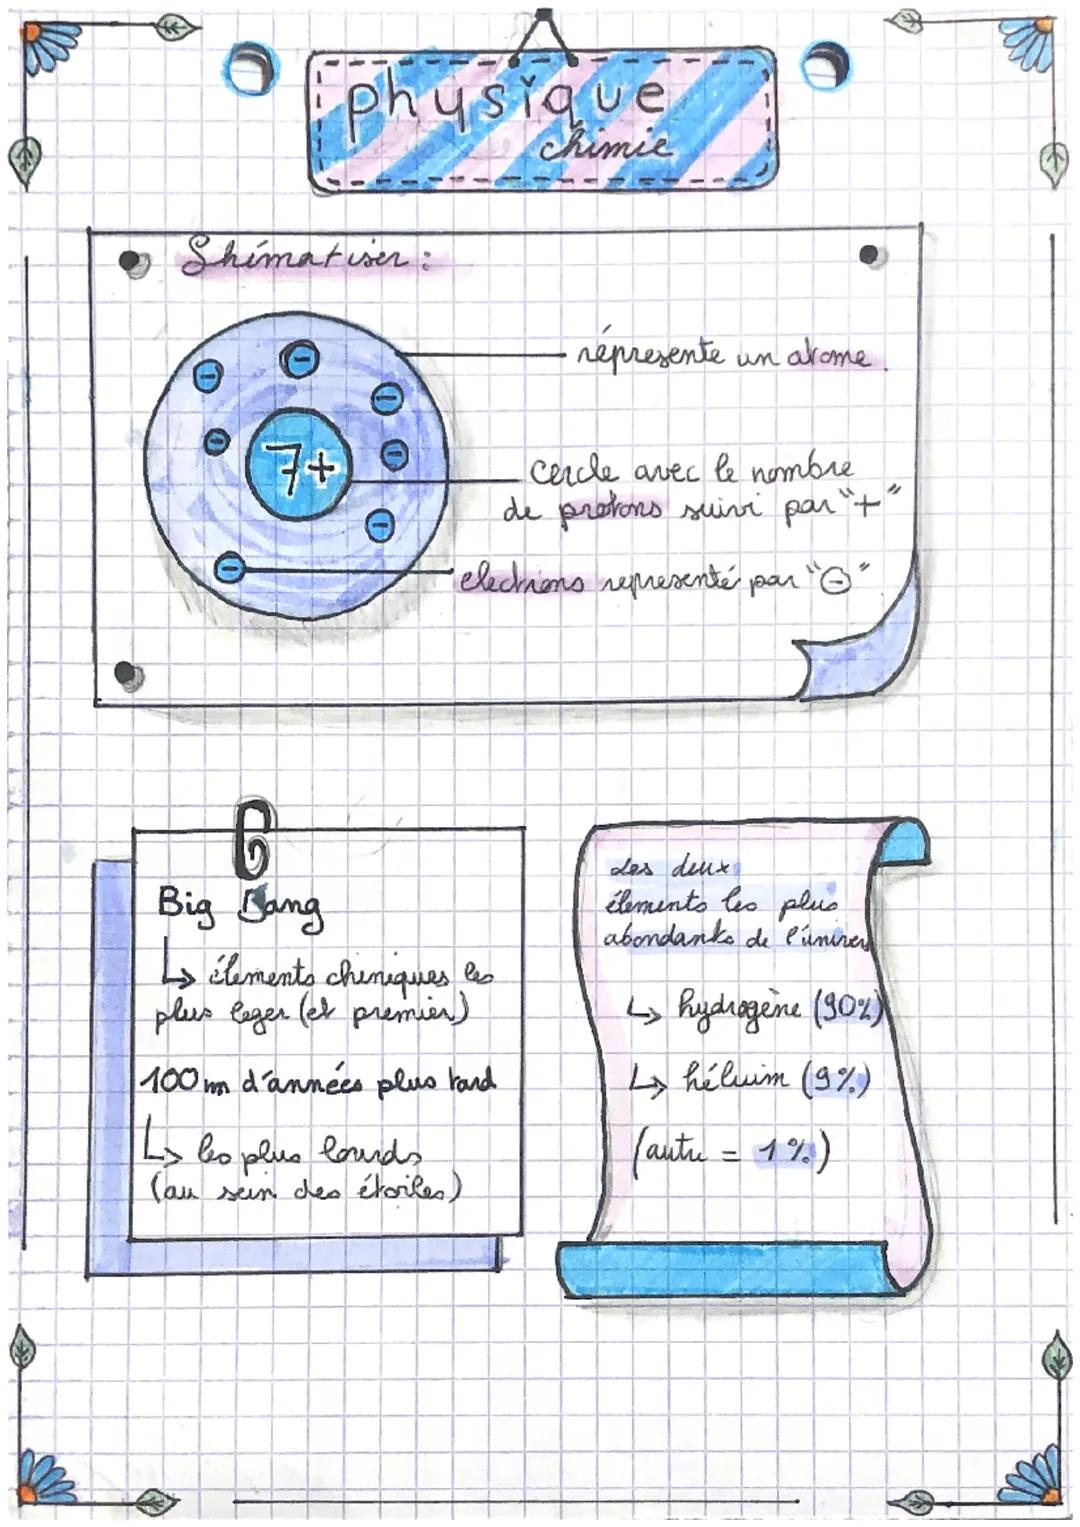 physique
chimie
Shématiser :
réprésente un atome.
7+
cercle avec le nombre
de protons suivi par "+"
electrons representé par "⊖"
Big Bang
↳ élements chimiques les
plus leger (et premier)
100 m d'années plus tard
↳ les plus lourds
(au sein des étoiles)
Les deux
élements les plus
abondants de l'univers
↳ hydrogène (90%)
↳ héluim (9%)
(autre = 1%)